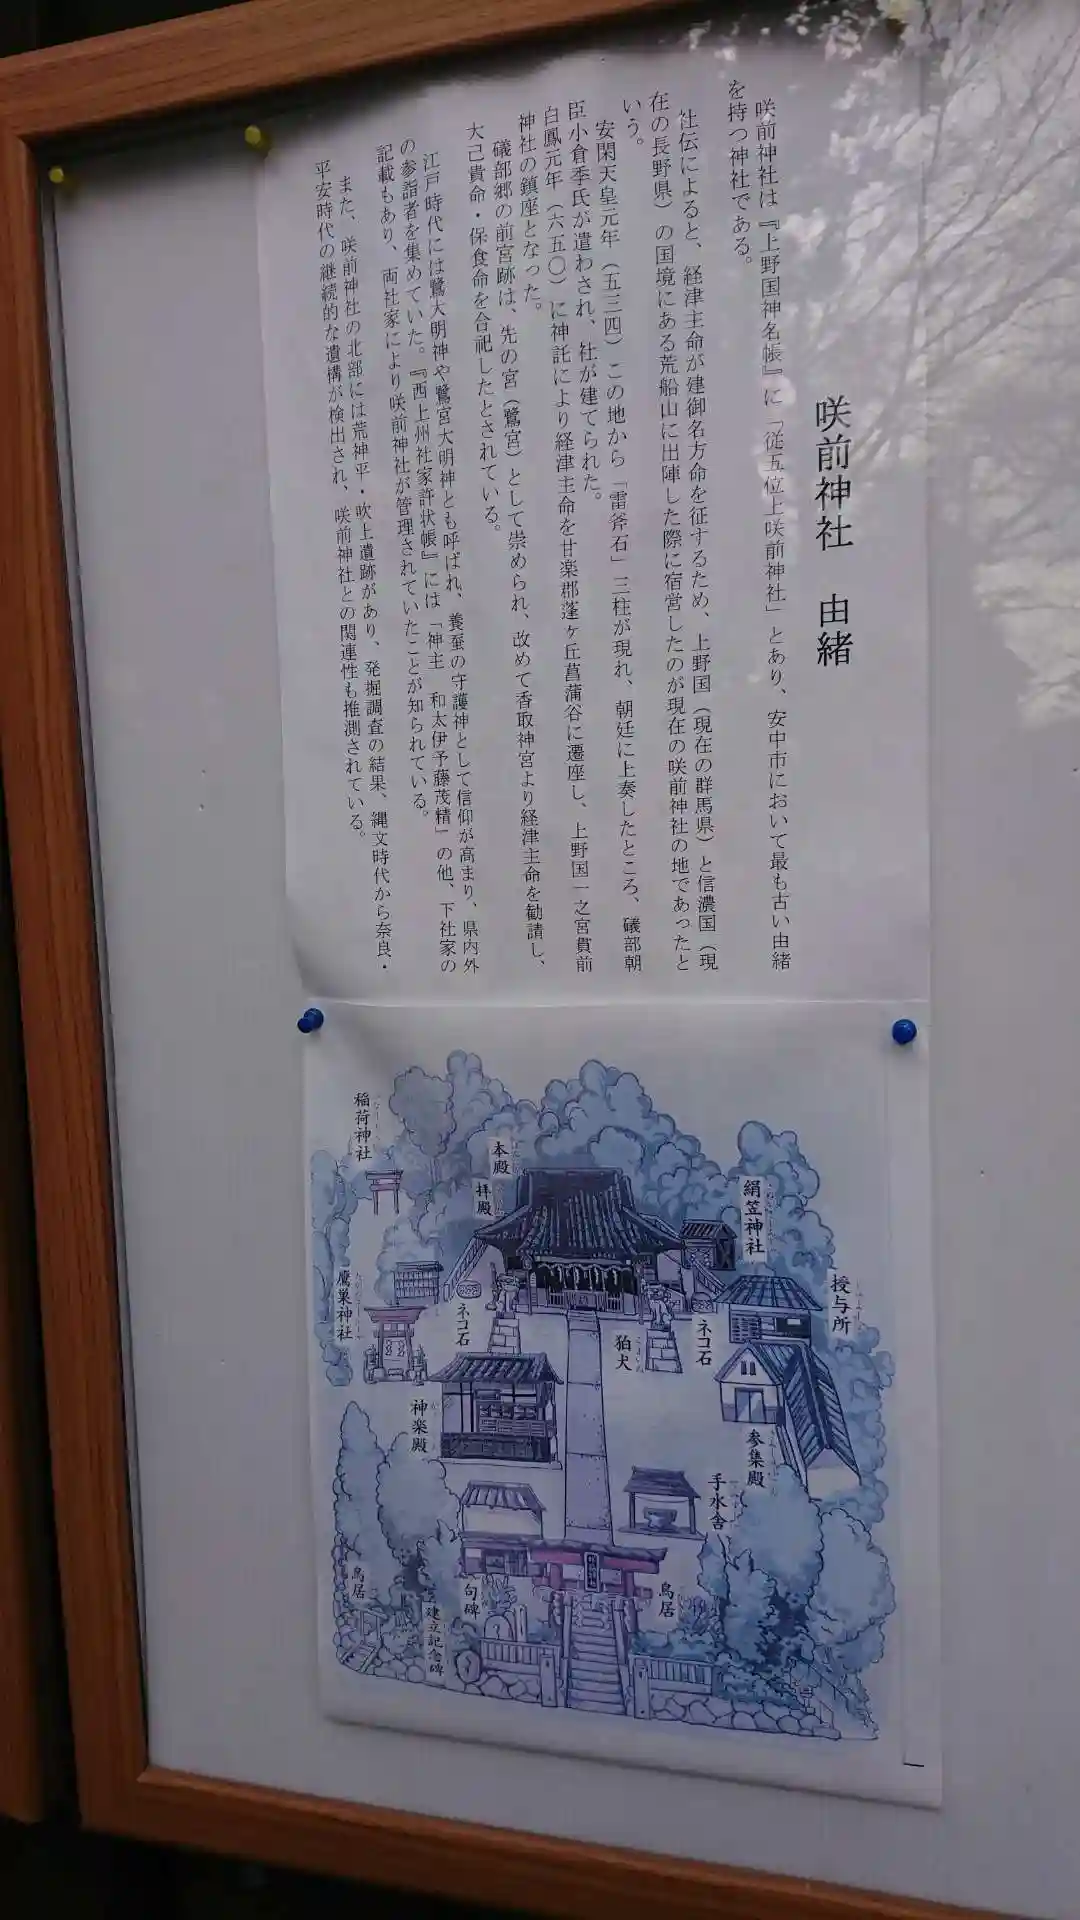 咲前神社　由緒
咲前神社は『上野国神名帳』に「従五位上咲前神社」とあり、安中市において最も古い由緒
を持つ神社である。
社伝によると、経津主命が建御名方命を征するため、上野国（現在の群馬県）と信濃国（現
在の長野県）の国境にある荒船山に出陣した際に宿営したのが現在の咲前神社の地であったと
いう。
安閑天皇元年（五三四）この地から「雷斧石」三柱が現れ、朝廷に上奏したところ、磯部朝
臣小倉季氏が遣わされ、社が建てられた。
白鳳元年（六五〇）に神託により経津主命を甘楽郡蓬ヶ丘菖蒲谷に遷座し、上野国一之宮貫前
神社の鎮座となった。
磯部郷の前宮跡は、先の宮（鷺宮）として崇められ、改めて香取神宮より経津主命を勧請し、
大己貴命・保食命を合祀したとされている。
江戸時代には鷺大明神や鷺宮大明神とも呼ばれ、養蚕の守護神として信仰が高まり、県内外
の参詣者を集めていた。『西上州社家許状帳』には「神主　和太伊予藤茂精」の他、下社家の
記載もあり、両社家により咲前神社が管理されていたことが知られている。
また、咲前神社の北部には荒神平・吹上遺跡があり、発掘調査の結果、縄文時代から奈良・
平安時代の継続的な遺構が検出され、咲前神社との関連性も推測されている。
稲荷神社
本殿
拝殿
絹笠神社
授与所
鷹巣神社
ネコ石
狛犬
ネコ石
神楽殿
参集殿
手水舎
鳥居
建立記念碑
句碑
鳥居